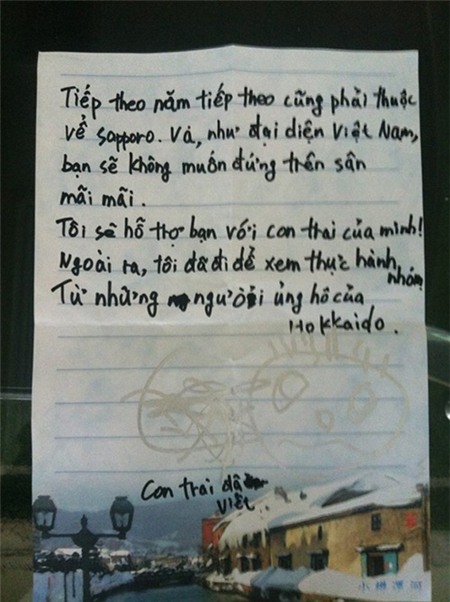 Tiếp theo năm tiếp theo cũng phải thuộc
về sapporo. Và, như đại diện Việt Nam,
bạn sẽ không muốn đứng trên sân
mãi mãi.
Tôi sẽ hỗ trợ bạn với con trai của mình!
Ngoài ra, tôi đã đi để xem thực hành nhóm
Từ những người ủng hộ của
Hokkaido.
Con trai đã
viết
小樽運河